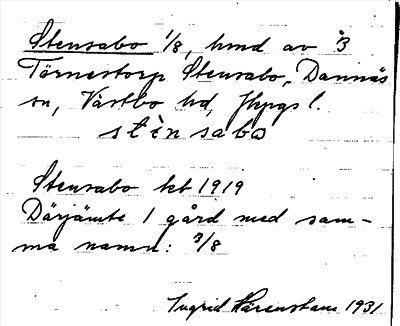 Stensabo 1/8, hmd av 3
Törnestorp Stensabo, Dannäs
sn, Västbo hd, Jkpgs l.
stènsabo
Stensabo kb 1919
Därjämte 1 gård med sam-
ma namn: 3/8
Ingrid Härenstam 1931